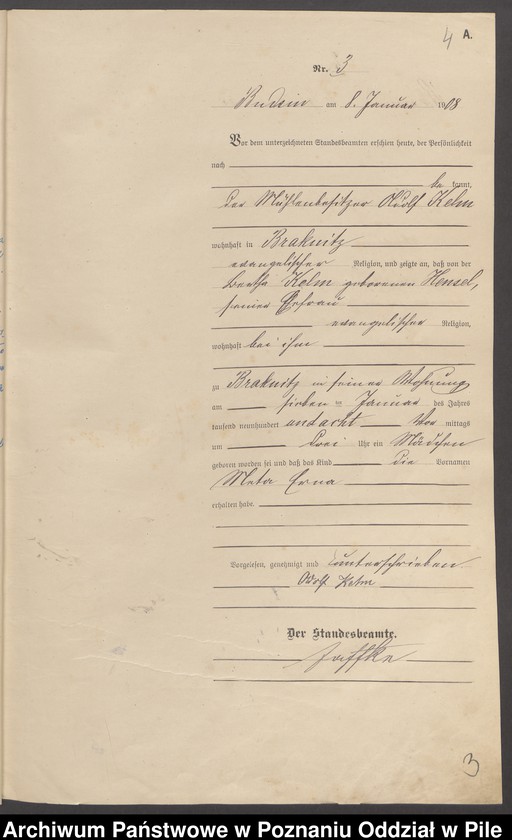 4 A.
Nr. 3
Budsin am 8. Januar 1908
Vor dem unterzeichneten Standesbeamten erschien heute, der Persönlichkeit
nach
be kannt,
der Mühlenbesitzer Adolf Kelm
wohnhaft in Braknitz
evangelischer Religion, und zeigte an, daß von der
Berta Kelm geborenen Hensel,
seiner Ehefrau
evangelischer Religion,
wohnhaft bei ihm
zu Braknitz in seiner Wohnung
am sieben ten Januar des Jahres
tausend neunhundert und acht Vor mittags
um drei Uhr ein Mädchen
geboren worden sei und daß das Kind die Vornamen
Meta Erna
erhalten habe.
Vorgelesen, genehmigt und unterschrieben
Adolf Kelm
Der Standesbeamte.
Jaffke
3
Archiwum Państwowe w Poznaniu Oddział w Pile